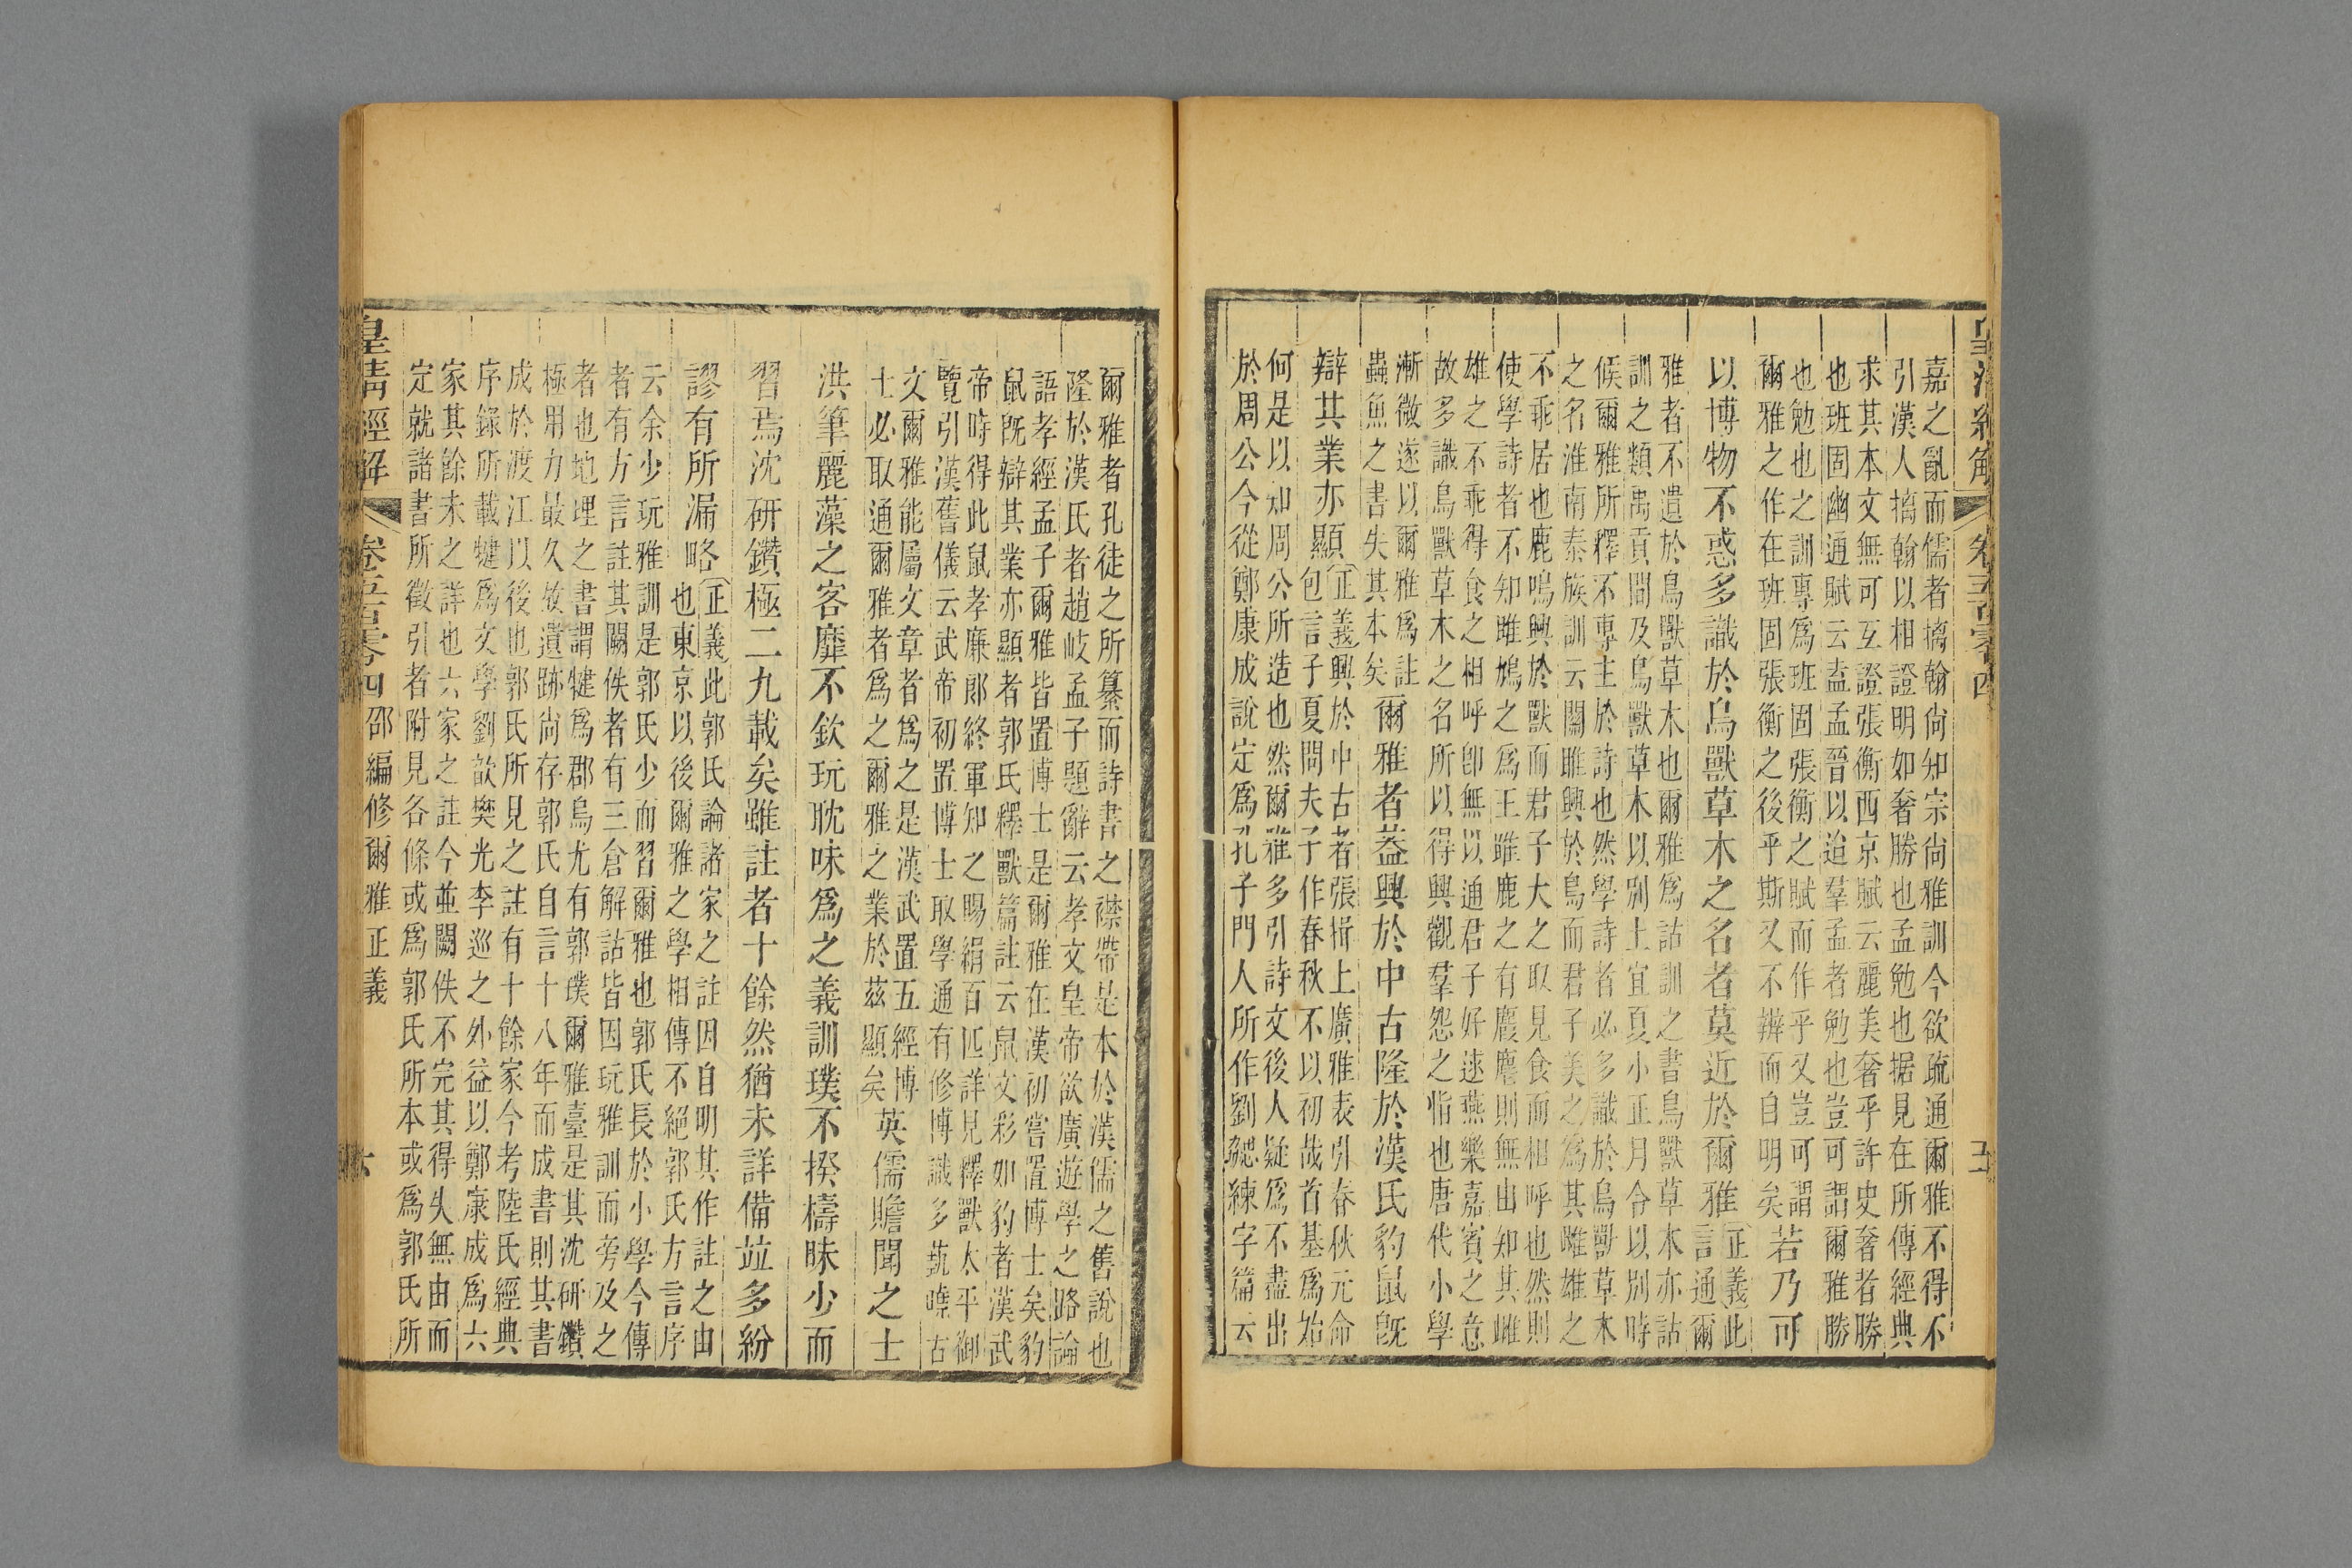 嘉之亂而儒者摛翰尙知宗尙雅訓今欲疏通爾雅不得不
引漢人摛翰以相證明如奢勝也孟勉也据見在所傳經典
求其本文無可互證張衡西京賦云麗美奢乎許史奢者勝
也班固幽通賦云盍孟晉以迨羣孟者勉也豈可謂爾雅勝
也勉也之訓專爲班固張衡之賦而作乎又豈可謂
爾雅之作在班固張衡之後乎斯又不辨而自明矣
若乃可
以博物不惑多識於鳥獸草木之名者莫近於爾雅
正義此
言通爾
雅者不遺於鳥獸草木也爾雅爲詁訓之書鳥獸草木亦詁
訓之類禹貢間及鳥獸草木以別土宜夏小正月令以別時
候爾雅所釋不專主於詩也然學詩者必多識於鳥獸草木
之名淮南泰族訓云關雎興於鳥而君子美之爲其雌雄之
不乖居也鹿鳴興於獸而君子大之取見食而相呼也然則
使學詩者不知雎鳩之爲王雎鹿之有麚麀則無由知其雌
雄之不乖得食之相呼卽無以通君子好逑燕樂嘉賓之意
故多識鳥獸草木之名所以得興觀羣怨之恉也唐代小學
漸微遂以爾雅爲註
蟲魚之書失其本矣
爾雅者葢興於中古隆於漢氏豹鼠旣
辯其業亦顯
正義興於中古者張揖上廣雅表引春秋元命
包言子夏問夫子作春秋不以初哉首基爲始
何是以知周公所造也然爾雅多引詩文後人疑爲不盡出
於周公今從鄭康成說定爲孔子門人所作劉勰練字篇云
皇清經解
卷五百零四
五
爾雅者孔徒之所纂而詩書之襟帶是本於漢儒之舊說也
隆於漢氏者趙岐孟子題辭云孝文皇帝欲廣遊學之路論
語孝經孟子爾雅皆置博士是爾雅在漢初嘗置博士矣豹
鼠旣辯其業亦顯者郭氏釋獸篇註云鼠文彩如豹者漢武
帝時得此鼠孝廉郞終軍知之賜絹百匹詳見釋獸太平御
覽引漢舊儀云武帝初置博士取學通有修博識多蓺曉古
文爾雅能屬文章者爲之是漢武置五經博
士必取通爾雅者爲之爾雅之業於茲顯矣
英儒贍聞之士
洪筆麗藻之客靡不欽玩耽味爲之義訓璞不揆檮昧少而
習焉沈研鑽極二九載矣雖註者十餘然猶未詳備竝多紛
謬有所漏略
正義此郭氏論諸家之註因自明其作註之由
也東京以後爾雅之學相傳不絕郭氏方言序
云余少玩雅訓是郭氏少而習爾雅也郭氏長於小學今傳
者有方言註其闕佚者有三倉解詁皆因玩雅訓而旁及之
者也地理之書謂犍爲郡烏尤有郭璞爾雅臺是其沈硏鑽
極用力最久故遺跡尙存郭氏自言十八年而成書則其書
成於渡江以後也郭氏所見之註有十餘家今考陸氏經典
序錄所載犍爲文學劉歆樊光李巡之外益以鄭康成爲六
家其餘未之詳也六家之註今並闕佚不完其得失無由而
定就諸書所徵引者附見各條或爲郭氏所本或爲郭氏所
皇清經解
卷五百零四
邵編修爾雅正義
六